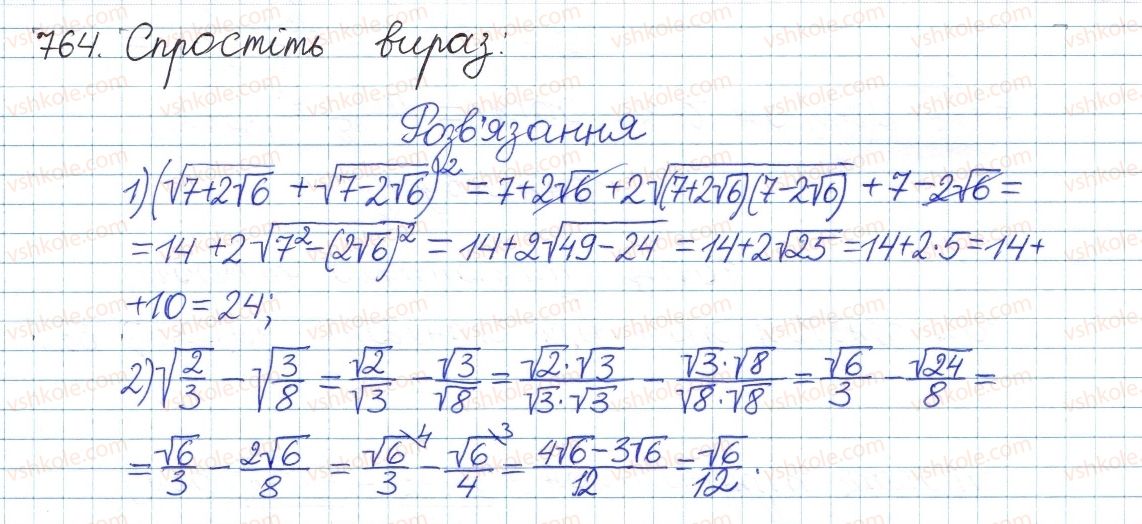 764. Спростіть вираз:
Розв'язання
1) (√(7+2√6) + √(7-2√6))² = 7+2√6 + 2√((7+2√6)(7-2√6)) + 7-2√6 =
= 14 + 2√(7²-(2√6)²) = 14+2√(49-24) = 14+2√25 = 14+2·5 = 14+
+10 = 24;
2) √(2/3) - √(3/8) = √2/√3 - √3/√8 = (√2·√3)/(√3·√3) - (√3·√8)/(√8·√8) = √6/3 - √24/8 =
= √6/3 - 2√6/8 = √6\4/3 - √6\3/4 = (4√6-3√6)/12 = √6/12.